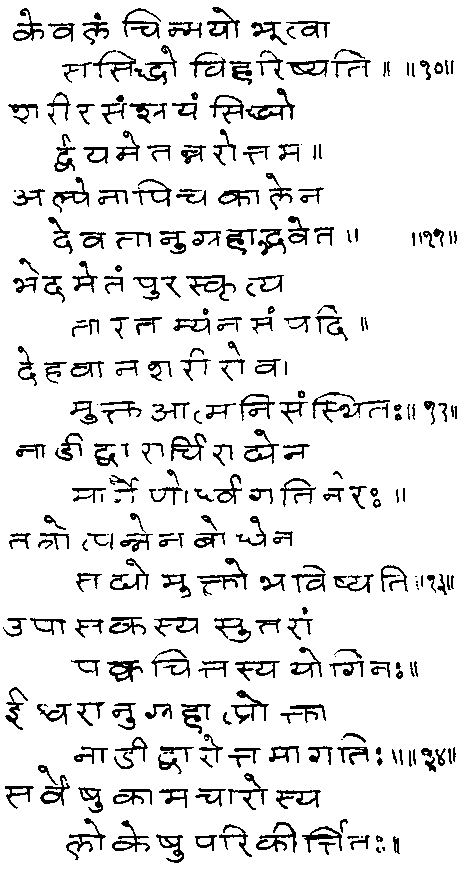 केवलं चिन्मयो भूत्वा
स सिद्धो विहरिष्यति ॥ ॥१०॥
शरीरसंश्रयं सिध्यो
र्द्वयमेतन्नरोत्तम ॥
अल्पेनापि च कालेन
देवतानुग्रहाद्भवेत ॥ ॥११॥
भेदमेतं पुरस्कृत्य
तारतम्यं न संपदि ॥
देहवानशरीरो वा
मुक्त आत्मनि संस्थितः ॥१२॥
नाडीद्वारार्चिराद्येन
मार्गेणोर्ध्वगतिर्नरः ॥
तत्रोत्पन्नेन बोधेन
सद्यो मुक्तो भविष्यति ॥१३॥
उपासकस्य सुतरां
पक्वचित्तस्य योगिनः ॥
ईश्वरानुग्रहात्प्रोक्ता
नाडीद्वारोत्तमा गतिः ॥ ॥१४॥
सर्वेषु कामचारोस्य
लोकेषु परिकीर्त्तितः ॥